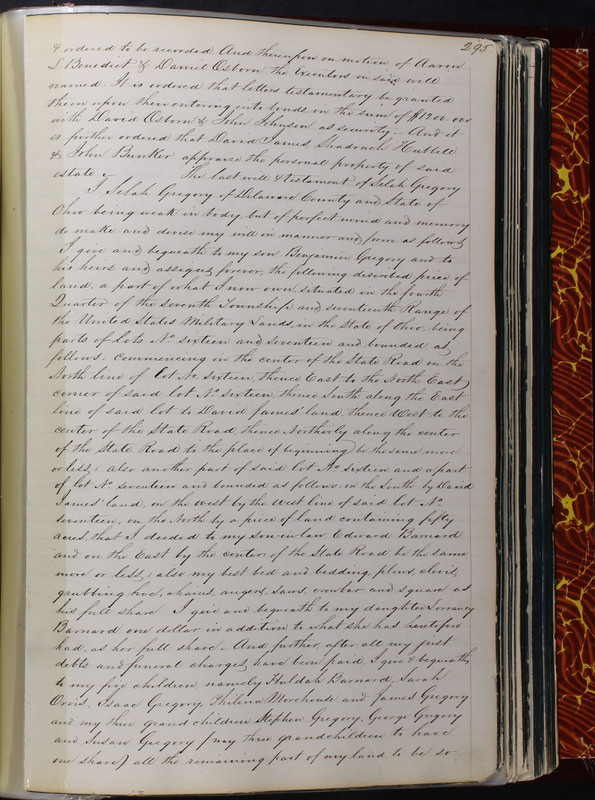 295
& ordered to be recorded. And thereupon on motion of Aaron
S Benedict & Daniel Osborn the Executors in said will
named. It is ordered that letters testamentary be granted
them upon their entering into bonds in the sum of $1200.00
with David Osborn & John Johnson as security – And it
is further ordered that David James Shadrach Hubbell
& John Bunker appraise the personal property of said
estate
The last will & testament of Selah Gregory
I Selah Gregory of Delaware County and State of
Ohio being weak in body, but of perfect mind and memory
do make and devise my will in manner and form as follows,
I give and bequeath to my son Benjamin Gregory and to
his heirs and assigns forever, the following described piece of
land, a part of what I now own, situated in the fourth
Quarter of the seventh Township and seventeenth Range of
the United States Military Lands, in the State of Ohio, being
parts of Lots No sixteen and seventeen and bounded as
follows. Commencing in the center of the State Road on the
North line of lot No. sixteen, thence East to the North East
corner of said lot No sixteen, thence South along the East
line of said lot to David James' land, thence West to the
center of the State Road, thence Northerly along the center
of the State Road to the place of beginning be the same more
or less; also another part of said lot No sixteen and a part
of lot No seventeen and bounded as follows: on the South by David
James' land, on the west by the West line of said lot No.
seventeen, on the North by a piece of land containing fifty
acres, that I deeded to my son-in-law Edward Barnard
and on the East by the center of the State Road be the same
more or less,; also my best bed and bedding, plows, clevis,
grubbing hoe, chains, augers, saws, crowbar and square as
his full share I give and bequeath to my daughter Lorancy
Barnard one dollar in addition to what she has heretofore
had, as her full share – And, further, after all my just
debts and funeral charges, have been paid, I give & bequeath
to my five children, namely Huldah Barnard, Sarah
Orvis, Isaac Gregory, Philena Morehouse and James Gregory
and my three grand children Stephen Gregory, George Gregory
and Susan Gregory (my three grandchildren to have
one share) all the remaining part of my land to be so